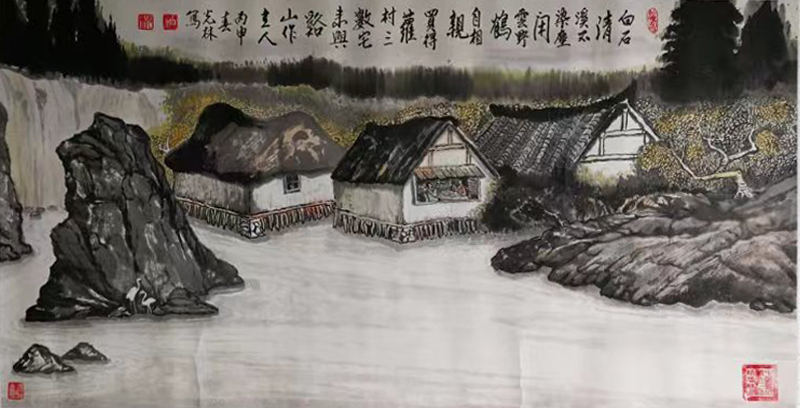 白石
清
溪不
染塵
闲
雲野
鶴
自相
親
買得
蘿
村三
數宅
来與
谿
山作
主人
丙申
春
光林
寫